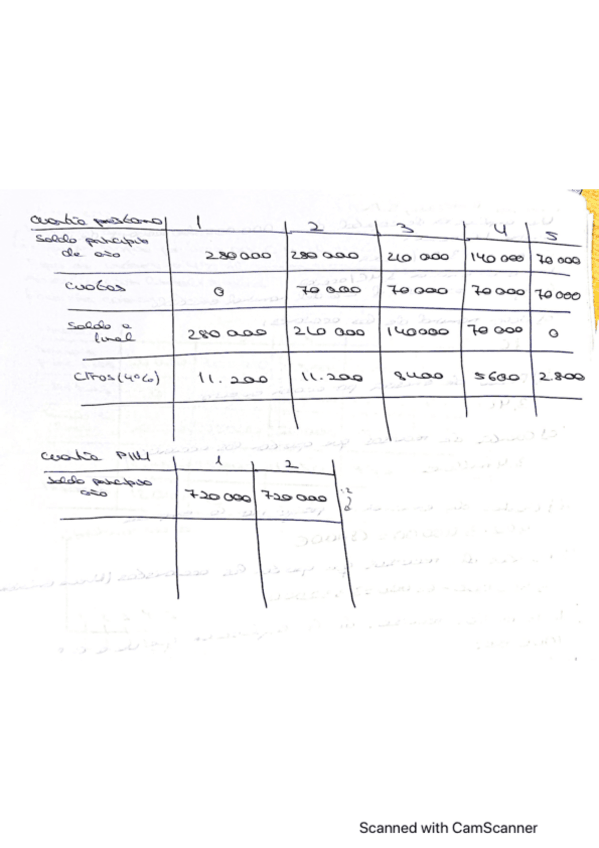 cuantía préstamo 1 2 3 4 5
Saldo principio de año 280000 280000 210000 140000 70000
cuotas 0 70000 70000 70000 70000
Saldo a final 280000 210000 140000 70000 0
(4%) 11.200 11.200 8400 5600 2.800
cuantía 1 2
Saldo principio año 720000 720000
Scanned with CamScanner